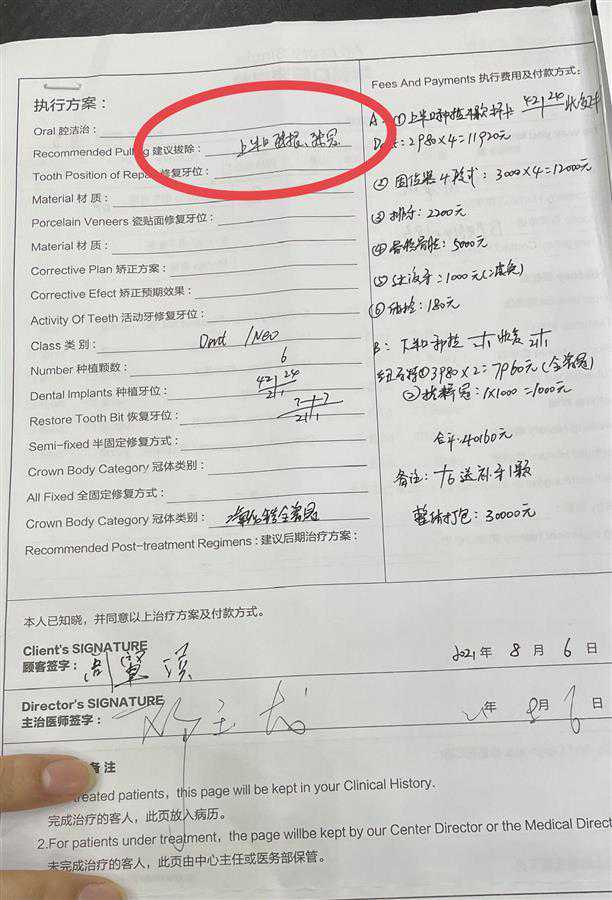 执行方案：
Oral 腔洁治：
Recommended Pulling 建议拔除： 上半口 残根、残冠
Tooth Position of Repair 修复牙位：
Material 材 质：
Porcelain Veneers 瓷贴面修复牙位：
Material 材 质：
Corrective Plan 矫正方案：
Corrective Efect 矫正预期效果：
Activity Of Teeth 活动牙修复牙位：
Class 类 别： /Neo
Number 种植颗数： 6
Dental Implants 种植牙位： 42 24 21 1
Restore Tooth Bit 恢复牙位： 7 7 21 1
Semi-fixed 半固定修复方式：
Crown Body Category 冠体类别：
All Fixed 全固定修复方式：
Crown Body Category 冠体类别： 氧化锆全瓷冠
Recommended Post-treatment Regimens : 建议后期治疗方案：
Fees And Payments 执行费用及付款方式：
A: ① 上半口种植 42 24
2980×4=11920元
② 固位器 4 : 3000×4=12000元
③ 排牙: 2200元
④ 5000元
⑤ 过渡牙: 1000元
⑥ 180元
B: 下半口种植
① 3980×2=7960元(全瓷冠)
② 1×1000=1000元
合计:40160元
备注: 6 送 牙1颗
整体打包: 30000元
本人已知晓，并同意以上治疗方案及付款方式。
Client's SIGNATURE
顾客签字：
2021 年 8 月 6 日
Director's SIGNATURE
主治医师签字：
年 8 月 6 日
备 注
treated patients, this page will be kept in your Clinical History.
完成治疗的客人，此页放入病历。
2.For patients under treatment, the page willbe kept by our Center Director or the Medical Direct
未完成治疗的客人，此页由中心主任或医务部保管。